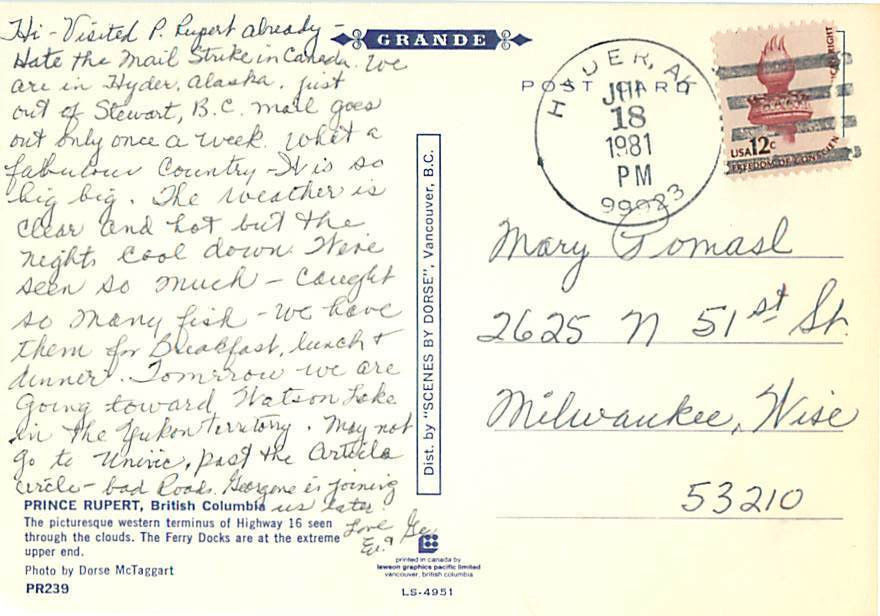 Hi - Visited P. Rupert already -
Hate the Mail Strike in Canada. We
are in Hyder, Alaska. just
out of Stewart, B.C. mail goes
out only once a week. What a
fabulous Country - It is so
big big. The weather is
clear and hot but the
nights cool down. We've
seen so much - Caught
so many fish - we have
them for Breakfast, lunch +
dinner. Tomrrow we are
Going toward Watson Lake
in the Yukon Territory. May not
go to past the
circle - bad Roads. Georgene is joining
us later.
Love
PRINCE RUPERT, British Columbia
The picturesque western terminus of Highway 16 seen
through the clouds. The Ferry Docks are at the extreme
upper end.
Photo by Dorse McTaggart
PR239
GRANDE
POST CARD
Dist. by "SCENES BY DORSE", Vancouver, B.C.
printed in canada by
lawson graphics pacific limited
vancouver, british columbia
LS-4951
HYDER, AK
JUN
18
1981
PM
99923
USA 12c
FREEDOM OF CONSCIEN
Mary Tomasl
2625 N 51st St.
Milwaukee, Wise
53210